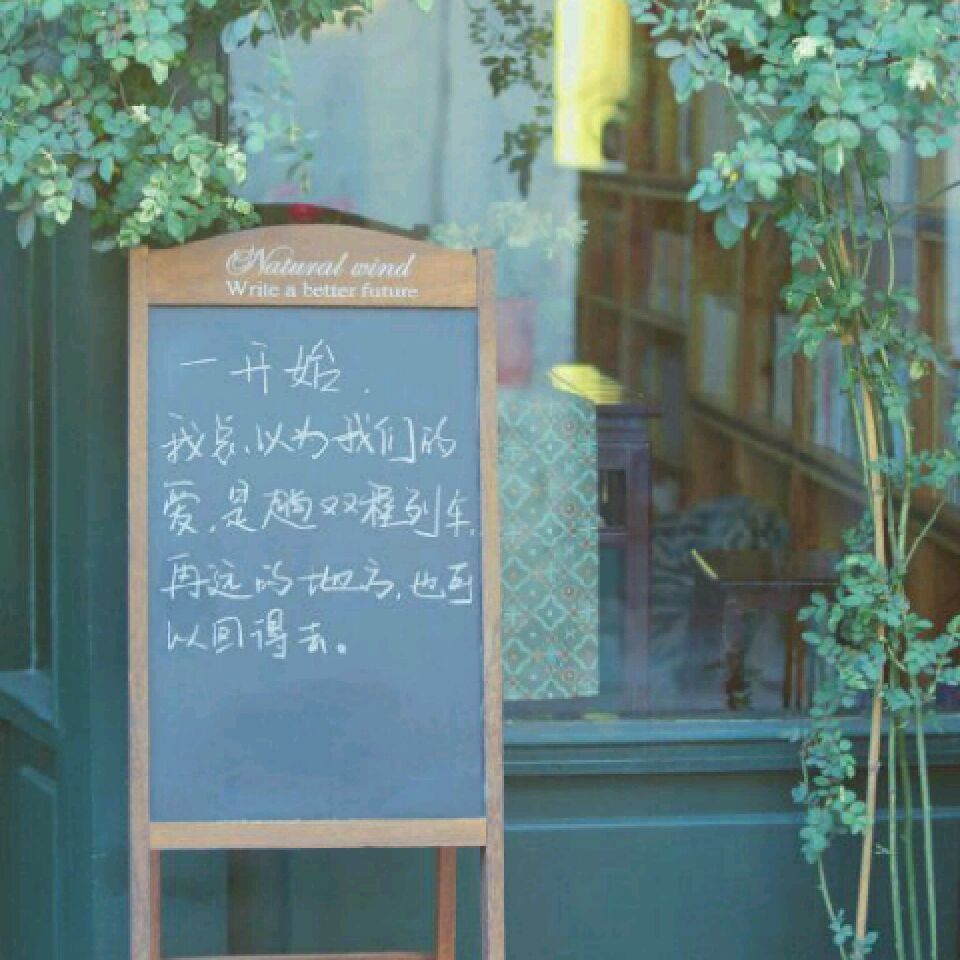 Natural wind
Write a better future
一开始.
我总以为我们的
爱,是趟双程列车,
再远的地方,也可
以回得去。